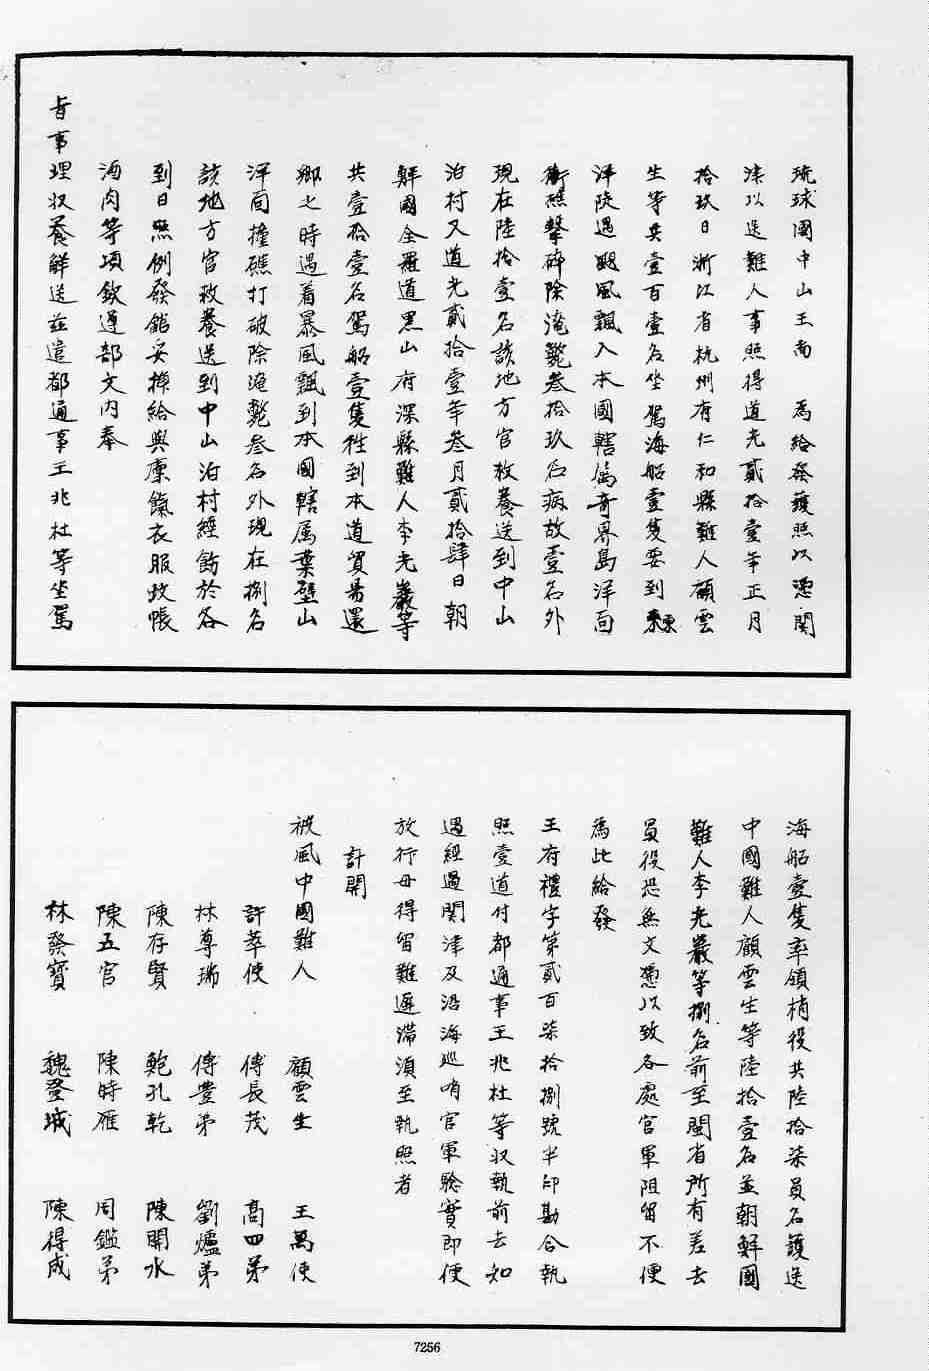 琉球國中山王尚　為給發護照以憑關
津以送難人事照得道光貳拾壹年正月
拾玖日浙江省杭州府仁和縣難人顧雲
生等共壹百壹名坐駕海船壹隻要到東
洋陡遇颶風飄入本國轄属奇界島洋面
衝礁擊碎除淹斃叁拾玖名病故壹名外
現在陸拾壹名該地方官救養送到中山
泊村又道光貳拾壹年叁月貳拾肆日朝
鮮國全羅道黑山府深縣難人李光巖等
共壹拾壹名駕船壹隻徃到本道貿易還
鄉之時遇着暴風飄到本國轄属葉壁山
洋面撞礁打破除淹斃叁名外現在捌名
該地方官救養送到中山泊村經飭於各
到日照例發館安揷給與廩餼衣服蚊帳
酒肉等項欽遵部文内奉
旨事理収養解送並遣都通事王兆杜等坐駕
海船壹隻率領梢役共陸拾柒員名護送
中國難人顧雲生等陸拾壹名並朝鮮國
難人李光巖等捌名前至閩省所有差去
員役恐無文憑以致各處官軍阻留不便
為此給發
王府禮字第貳百柒拾捌號半印勘合執
照壹道付都通事王兆杜等収執前去如
遇經過關津及沿海巡哨官軍驗實即便
放行毋得留難遲滞須至執照者
計開
被風中國難人　顧雲生　王萬使
許萃使　傅長茂　高四弟
林尊瑞　傅豊弟　劉爐弟
陳存賢　鮑孔乾　陳開水
陳五官　陳時雁　周鑑弟
林發寶　魏登城　陳得成
7256